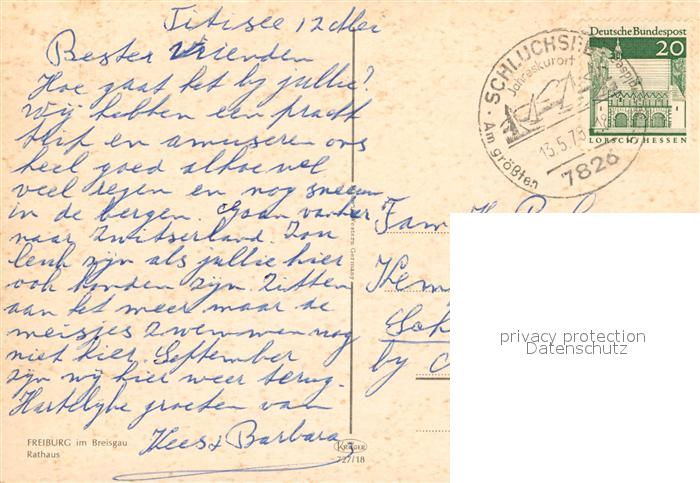 Titisee 12 Mei
Bester Vrienden
Hoe gaat het by jullie?
Wij hebben een pracht
trip en amuseren ons
heel goed alhoewel
veel regen en nog sneeuw
in de bergen. Gaan verder
naar Zwitserland. Zou
leuk zijn als jullie hier
ook konden zijn. Zitten
aan het meer maar de
meisjes zwemmen nog
niet hier. September
zijn wij hier weer terug.
Hartelyke groeten van
Kees & Barbara
FREIBURG im Breisgau
Rathaus
KRÜGER
727/18
Western Germany
Deutsche Bundespost
20
LORSCH/HESSEN
SCHLUCHSEE
Jahreskurort
13.5.75
Am größten
7826
Fam.
by
privacy protection
Datenschutz